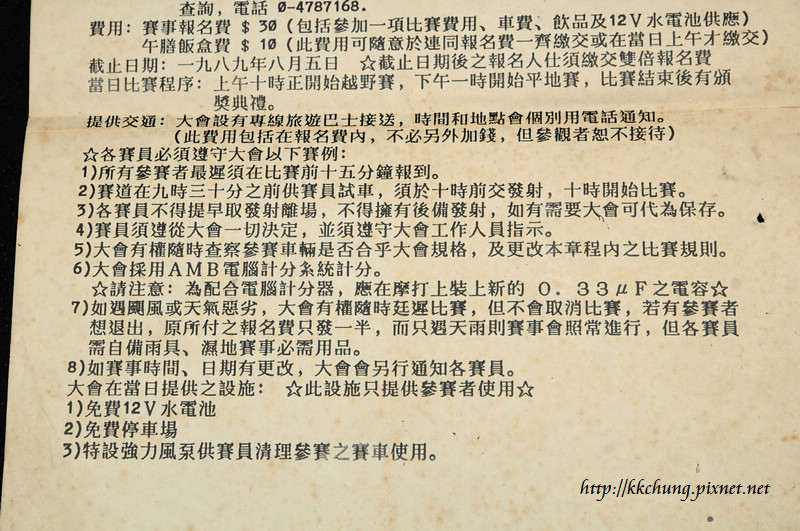 查詢，電話 0-4787168.
費用: 賽事報名費 $ 30 (包括參加一項比賽費用、車費、飲品及12V水電池供應)
午膳飯盒費 $ 10 (此費用可隨意於連同報名費一齊繳交或在當日上午才繳交)
截止日期: 一九八九年八月五日 ☆截止日期後之報名人仕須繳交雙倍報名費
當日比賽程序: 上午十時正開始越野賽，下午一時開始平地賽，比賽結束後有頒
獎典禮。
提供交通: 大會設有專線旅遊巴士接送，時間和地點會個別用電話通知。
(此費用包括在報名費內，不必另外加錢，但參觀者恕不接待)
☆各賽員必須遵守大會以下賽例:
1)所有參賽者最遲須在比賽前十五分鐘報到。
2)賽道在九時三十分之前供賽員試車，須於十時前交發射，十時開始比賽。
3)各賽員不得提早取發射離場，不得擁有後備發射，如有需要大會可代為保存。
4)賽員須遵從大會一切決定，並須遵守大會工作人員指示。
5)大會有權隨時查察參賽車輛是否合乎大會規格，及更改本章程內之比賽規則。
6)大會採用AMB電腦計分系統計分。
☆請注意: 為配合電腦計分器，應在摩打上裝上新的 0.33μF之電容☆
7)如遇颶風或天氣惡劣，大會有權隨時廷遲比賽，但不會取消比賽，若有參賽者
想退出，原所付之報名費只發一半，而只遇天雨則賽事會照常進行，但各賽員
需自備雨具、濕地賽事必需用品。
8)如賽事時間、日期有更改，大會會另行通知各賽員。
大會在當日提供之設施: ☆此設施只提供參賽者使用☆
1)免費12V水電池
2)免費停車場
3)特設強力風泵供賽員清理參賽之賽車使用。
http://kkchung.pixnet.net